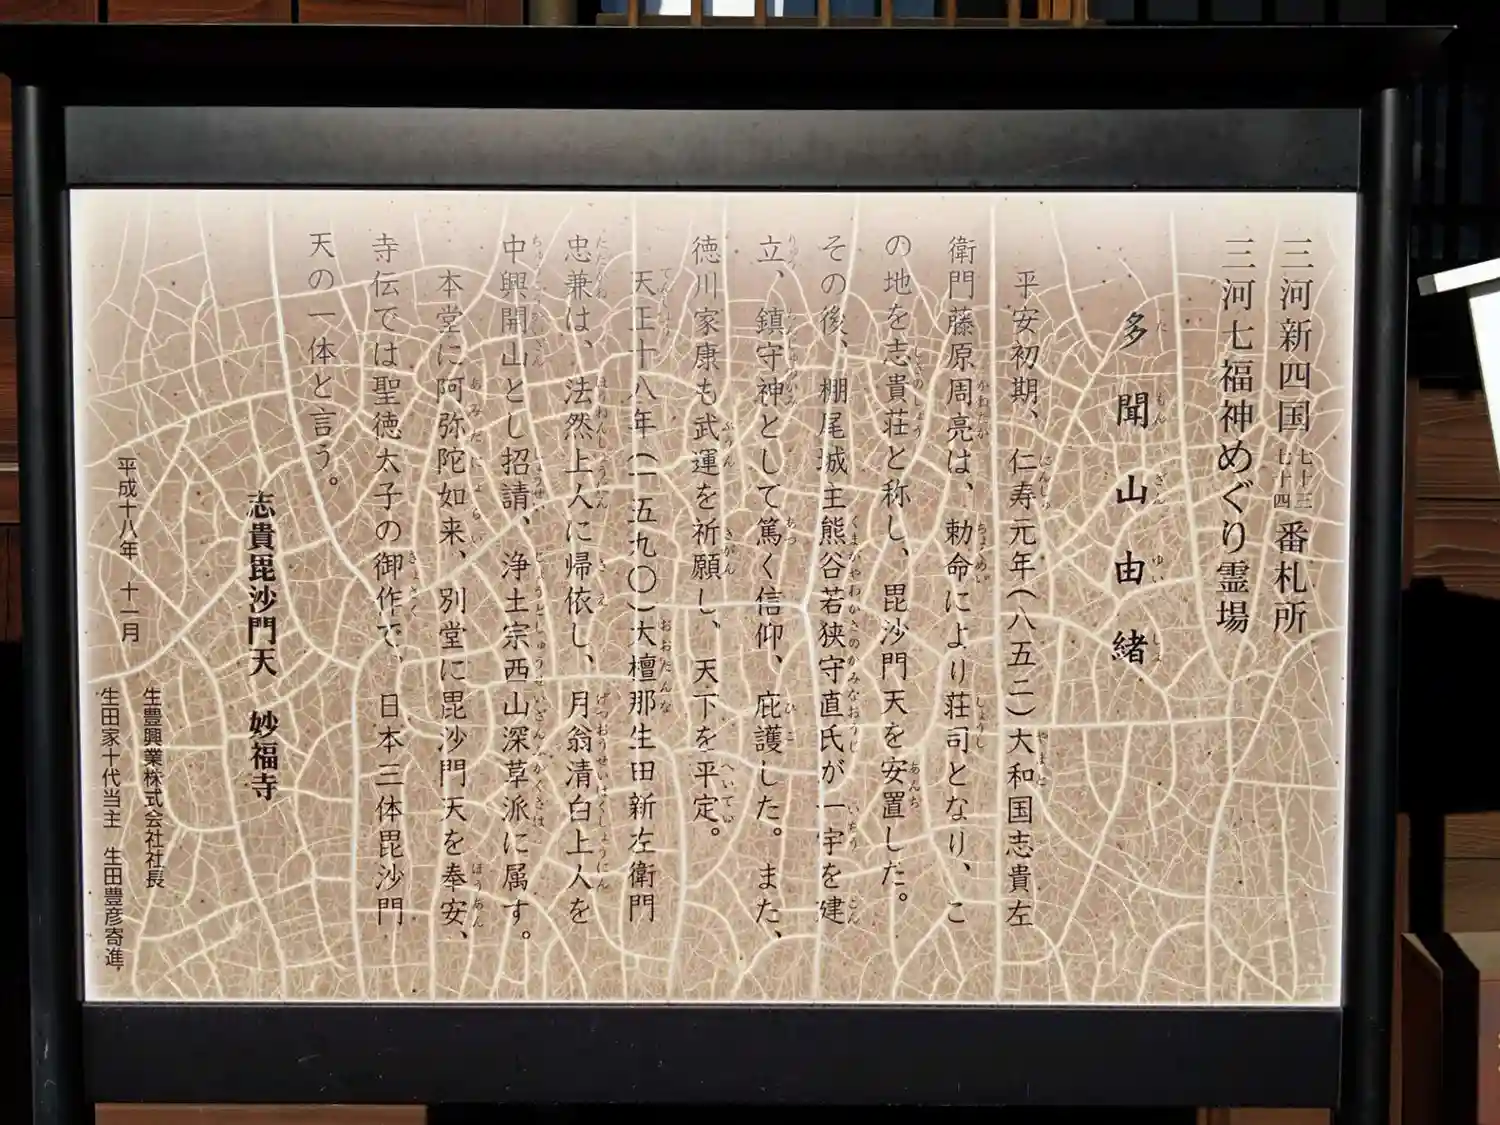 三河新四国七十三七十四番札所
三河七福神めぐり霊場
多聞山由緒
平安初期、仁寿元年(八五二)大和国志貴左
衛門藤原周亮は、勅命により荘司となり、こ
の地を志貴荘と称し、毘沙門天を安置した。
その後、棚尾城主熊谷若狭守直氏が一宇を建
立、鎮守神として篤く信仰、庇護した。また、
徳川家康も武運を祈願し、天下を平定。
天正十八年(一五九〇)大檀那生田新左衛門
忠兼は、法然上人に帰依し、月翁清白上人を
中興開山とし招請、浄土宗西山深草派に属す。
本堂に阿弥陀如来、別堂に毘沙門天を奉安、
寺伝では聖徳太子の御作で、日本三体毘沙門
天の一体と言う。
志貴毘沙門天 妙福寺
平成十八年 十一月
生豊興業株式会社社長
生田家十代当主 生田豊彦寄進